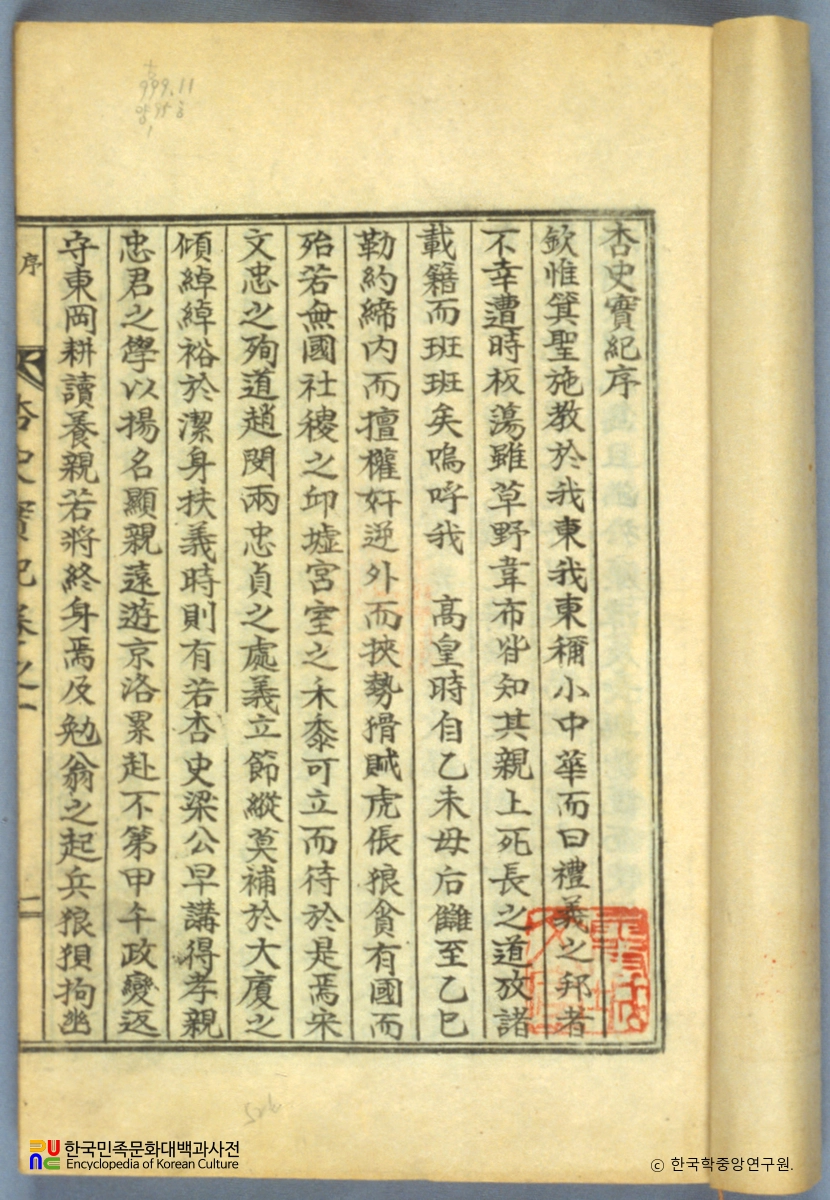 杏史實紀序
欽惟箕聖施教於我東我東稱小中華而曰禮義之邦者
不幸遭時板蕩雖草野韋布皆知其親上死長之道攷諸
載籍而班班矣嗚呼我 高皇時自乙未母后讎至乙巳
勒約締內而擅權奸逆外而挾勢猾賊虎倀狼貪有國而
殆若無國社稷之邱墟宮室之禾黍可立而待於是焉宋
文忠之殉道趙閔兩忠貞之處義立節縱莫補於大廈之
傾綽綽裕於潔身扶義時則有若杏史梁公早講得孝親
忠君之學以揚名顯親遠遊京洛累赴不第甲午政變返
守東岡耕讀養親若將終身焉及勉翁之起兵狼狽拘幽
序
杏史實紀卷之一
一
999.11
양94ㅎ
한국민족문화대백과사전
Encyclopedia of Korean Culture
© 한국학중앙연구원.